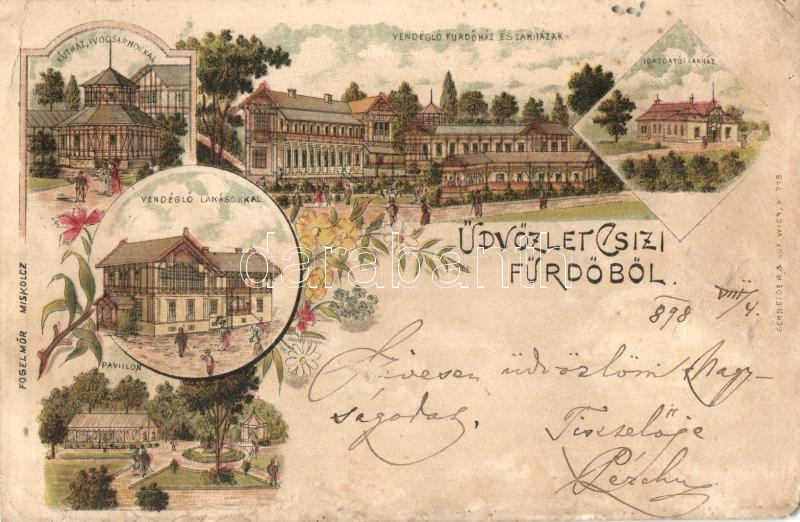 KÚTHÁZ, IVÓCSARNOKKAL
VENDÉGLŐ FÜRDŐHÁZ ÉS LAKHÁZAK
IGAZGATÓI LAKHÁZ
VENDÉGLŐ LAKÁSOKKAL
PAVILLON
ÜDVÖZLET CSIZI
FÜRDŐBŐL.
898 VIII/4
Szivesen üdvözlöm Nagy-
ságodat.
Tisztelője
FOGEL MÓR MISKOLCZ
SCHNEIDER & LUX, WIEN, N. 713
darabanth.com